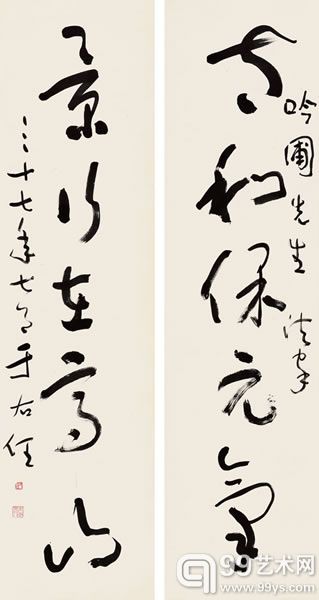 太和保元氣
吟圃先生 法家
景行在高山
三十七年七月于右任
99艺术网
www.99ys.com